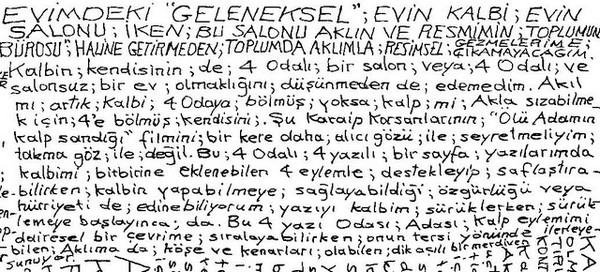 EVİMDEKİ "GELENEKSEL"; EVİN KALBİ; EVİN
SALONU; İKEN; BU SALONU AKLIN VE RESMİMİN; TOPLUMUN
BÜROSU; HALİNE GETİRMEDEN; TOPLUMDA AKLIMLA; RESİMSEL; GEZMELERİME;
ÇIKAMAYACAĞIM.
Kalbin; kendisinin; de; 4 Odalı; bir salon; veya; 4 Odalı; ve
salonsuz; bir ev; olmaklığını; düşünmeden de; edemedim. Akıl
mı; artık; kalbi; 4 Odaya; bölmüş; yoksa; kalp; mi; Akla sızabilme-
k için; 4'e bölmüş; kendisini;. Şu Karaip Korsanlarının; "Ölü Adamın
kalp sandığı" filmini; bir kere daha; alıcı gözü; ile; seyretmeliyim;
takma göz; ile; değil. Bu; 4 Odalı; 4 yazılı; bir sayfa; yazılarımda
kalbimi; birbirine eklenebilen 4 eylemle; destekleyip; saflaştıra-
bilirken; kalbin yapabilmeye; sağlayabildiği; özgürlüğü veya
hürriyeti de; edinebiliyorum; yazıyı kalbim; sürüklerken; sürük-
lemeye başlayınca; da. Bu 4 yazı Odası; Adası; Kalp eylemimi
dairesel bir çevrime; sıralayabilirken; onun tersi yönünde ilerleye-
bilen; Aklıma da; köşe ve kenarları; olabilen; dik açılı bir merdiven
sunuyor.